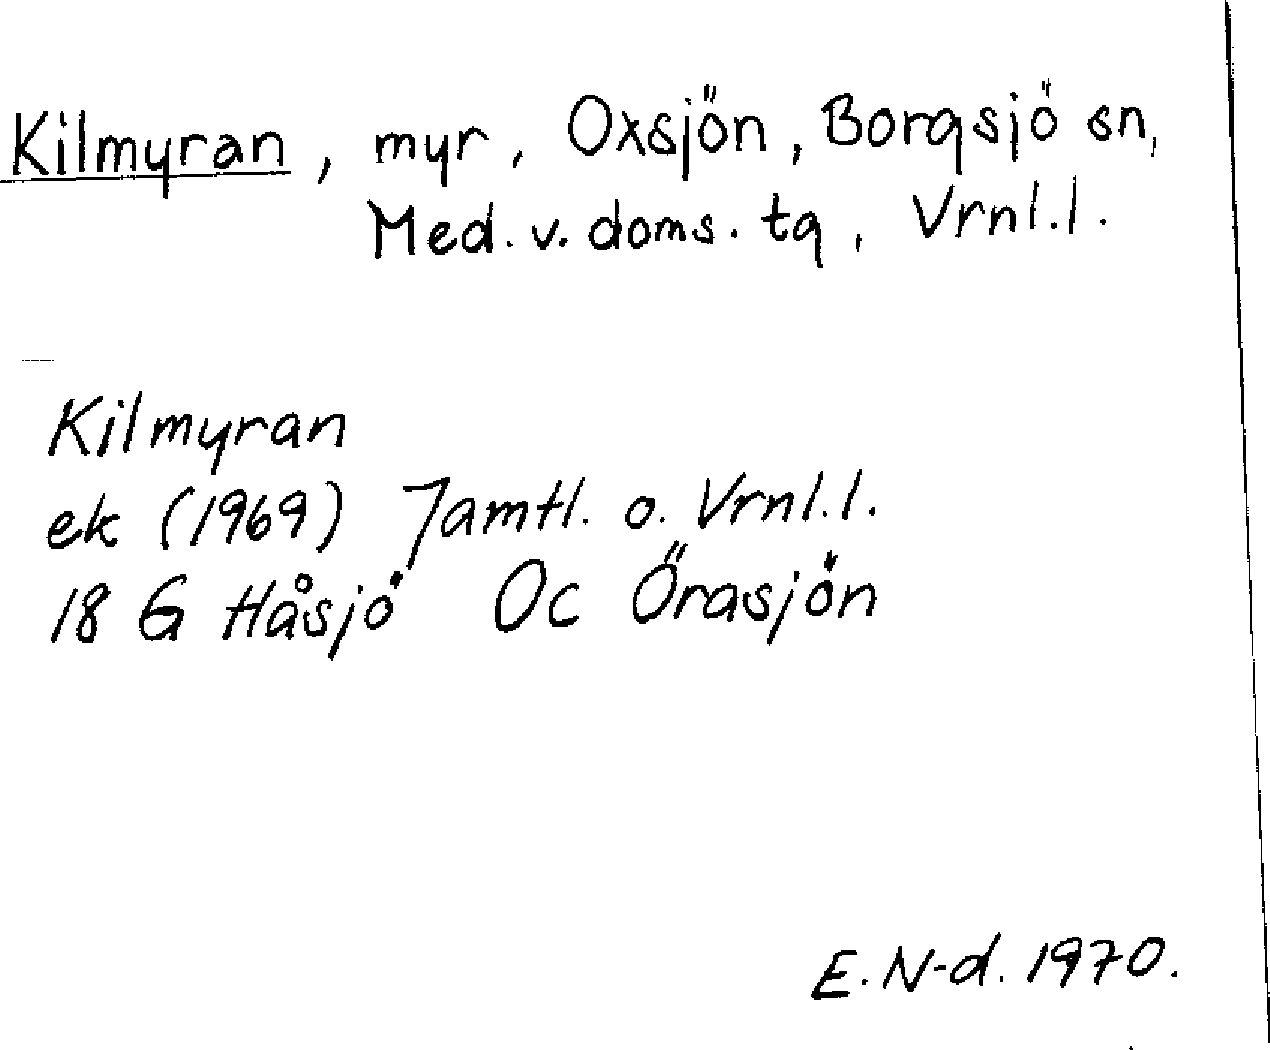 Kilmyran, myr, Oxsjön, Borgsjö sn,
Med. v. doms. tg, Vrnl.l.
Kilmyran
ek (1969) Jämtl. o. Vrnl.l.
18 G Håsjö Oc Örasjön
E. N-d. 1970.